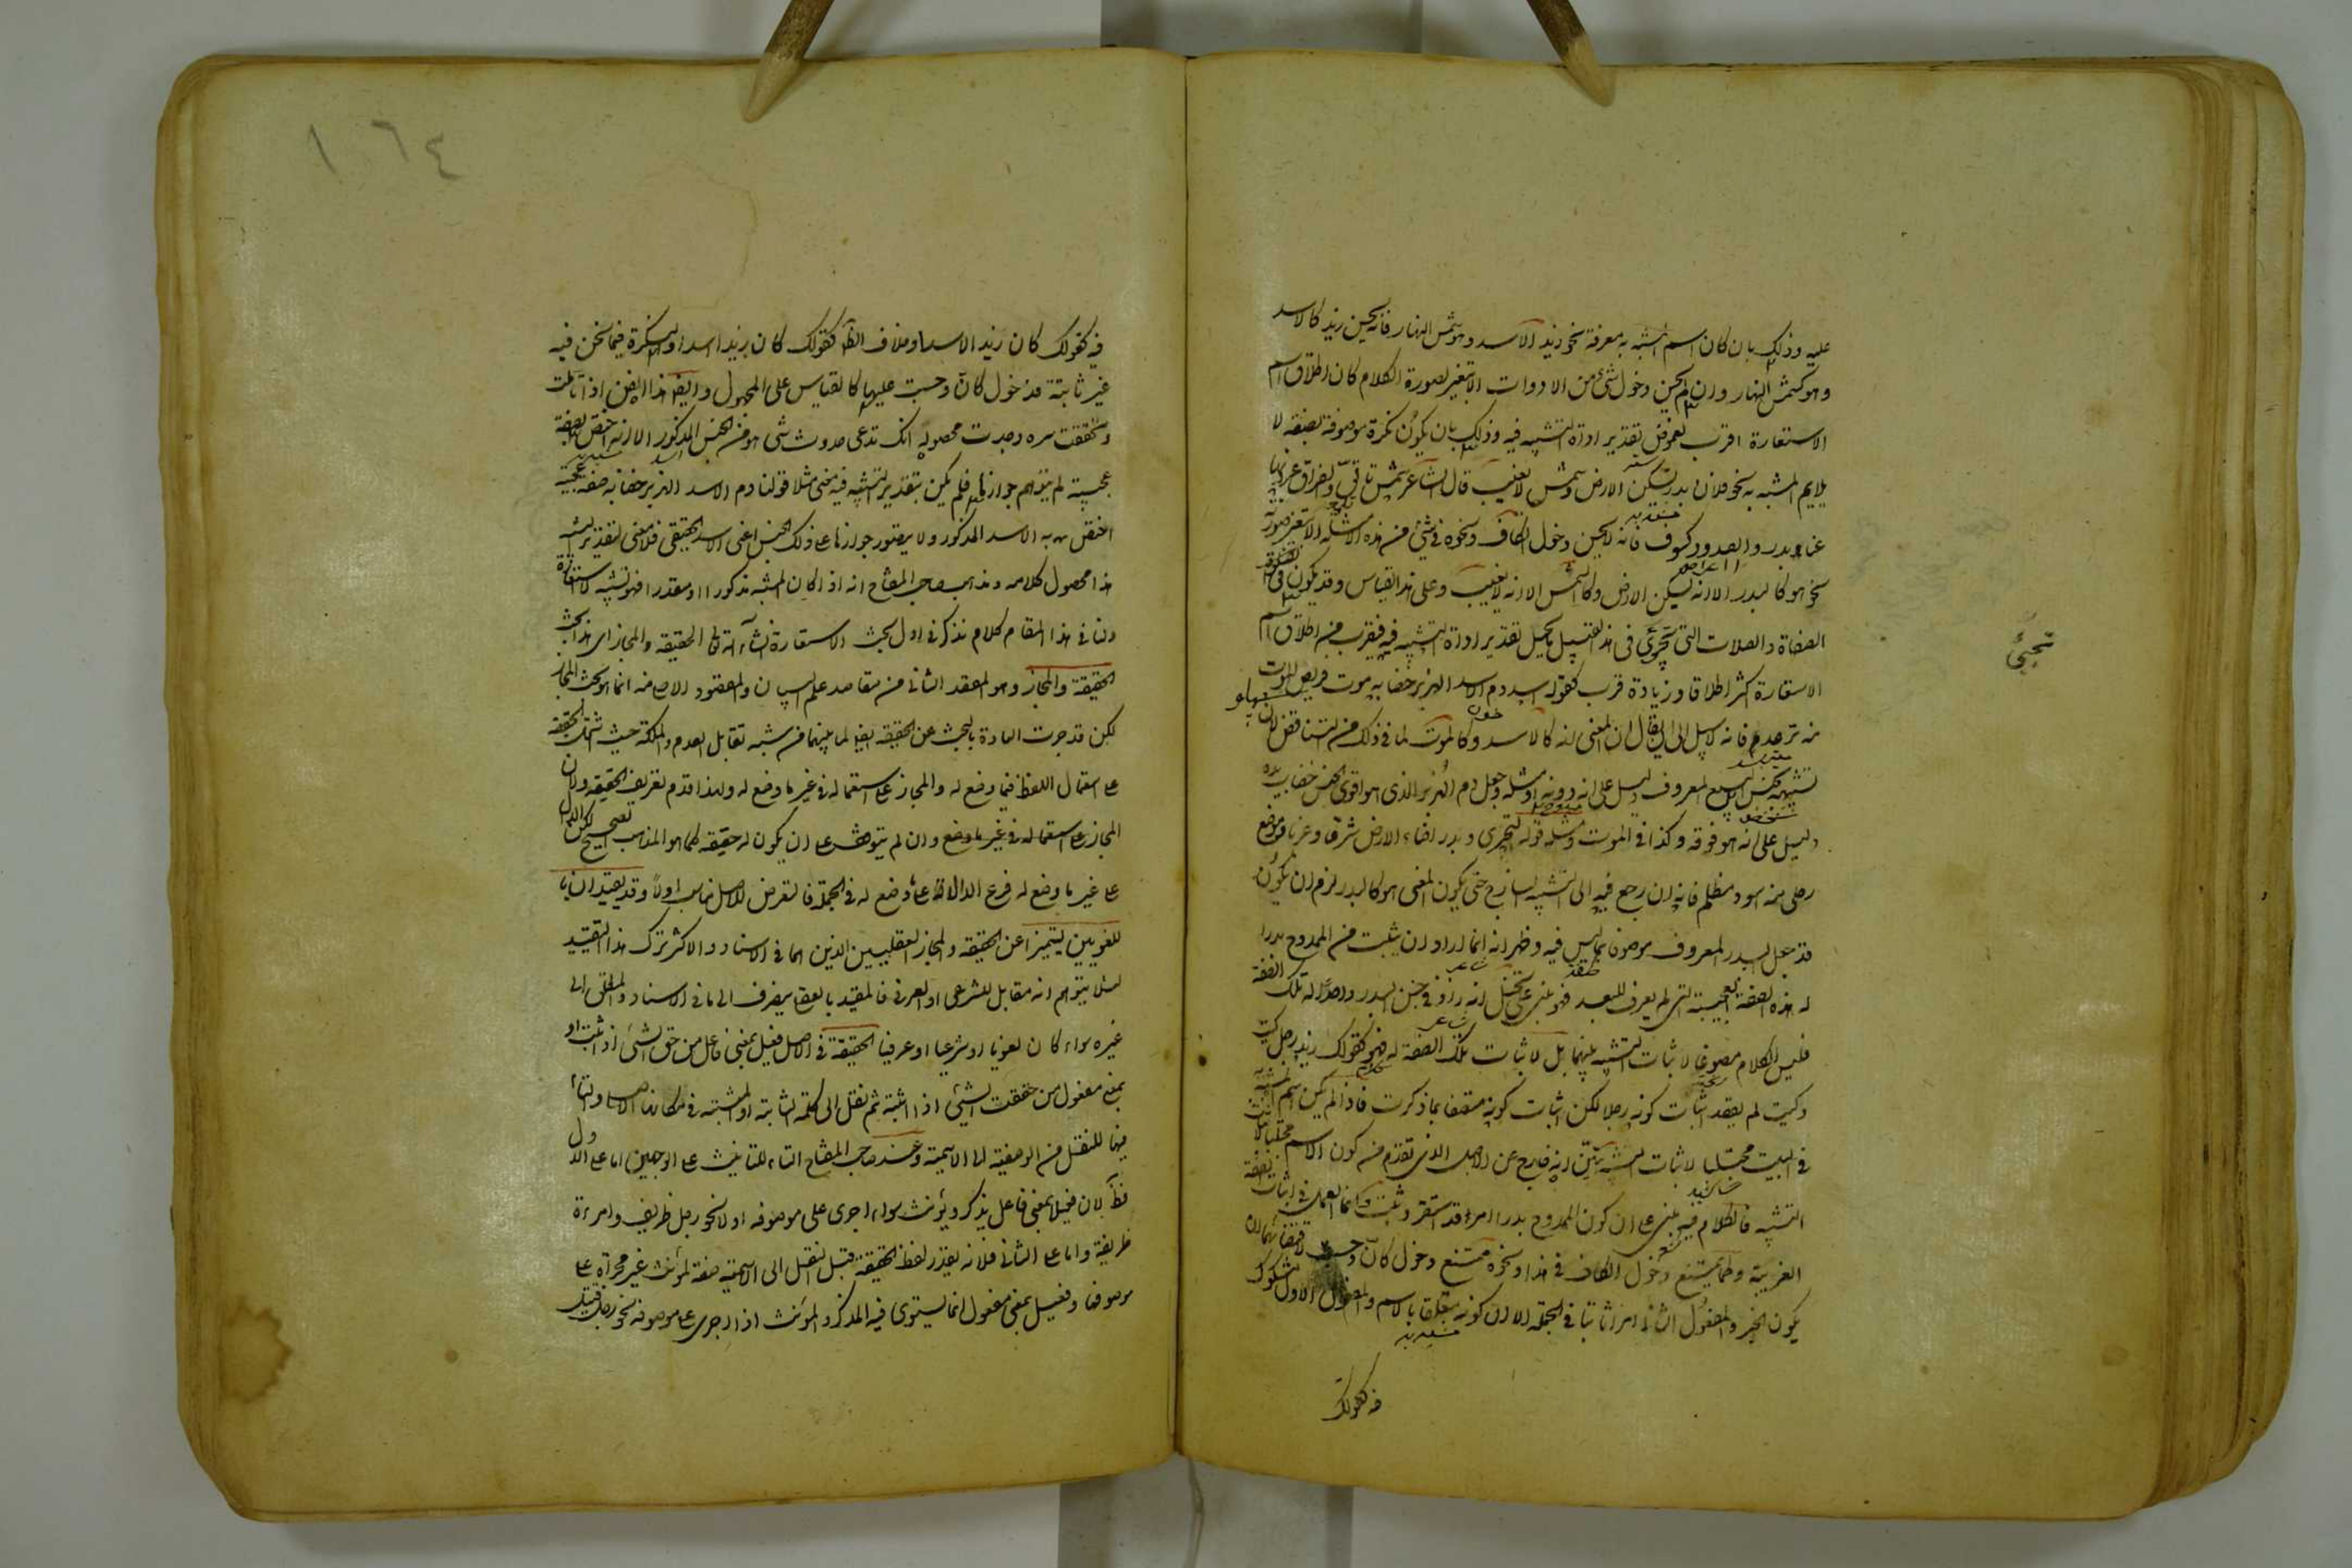 عليه وذلك بان كان اسم المشبه به معرفة نحو زيد الاسد وهو شمس النهار فانه يحسن زيد كالاسد
وهو كشمس النهار وان لم يحسن دخول شئ من الادوات الا بتغير لصورة الكلام كان اطلاق اسم
الاستعارة اقرب لغموض تقدير اداة التشبيه فيه وذلك بان يكون نكرة موصوفة بصفة لا
يلايم المشبه به نحو فلان بدر يسكن الارض وشمس لا تغيب قال الشاعر شمس تألق والفراق غروبها
عنا وبدر والصدود كسوف فانه لا يحسن دخول الكاف ونحوه في شئ من هذه الامثلة الا بتغير صورته
نحو هو كالبدر الا انه يسكن الارض وكالشمس الا انه لا يغيب وعلى هذا القياس وقد يكون في
الصفاة والصلات التى تجئ فى هذا القبيل ما يحيل تقدير اداة التشبيه فيه فيقرب من اطلاق اسم
الاستعارة اكثر اطلاقا وزيادة قرب كقوله اسد دم الاسد الهزبر خضابه موت فريص الموت
منه ترعد فانه لا سبيل الى ان يقال ان المعنى انه كالاسد وكالموت لما في ذلك من التناقض لان
تشبيهه بجنس السبع المعروف دليل على انه دونه او مثله وجعل دم الهزبر الذى هو اقوى الجنس خضاب يده
دليل على انه هو فوقه وكذا في الموت ومثله قول البحترى وبدر اضاء الارض شرقا وغربا وموضع
رحلى منه اسود مظلم فانه ان رجع فيه الى التشبيه الساذج حتى يكون المعنى هو كالبدر لزم ان يكون
قد جعل البدر المعروف موصوفا بما ليس فيه وظهر انه انما اراد ان يثبت من الممدوح بدرا
له هذه الصفة العجيبة التى لم يعرف للبعد فهو مبنى على تخيل انه زاد في جنس البدر واحدا له تلك الصفة
فليس الكلام موضوعا لاثبات التشبيه بينهما بل لاثبات تلك الصفة له فهو كقولك زيد رجل كيت
وكيت لم يقصد اثبات كونه رجلا لكن اثبات كونه متصفا بما ذكرت فاذا لم يكن اسم المشبه به
في البيت مجتلبا لاثبات الشبه تبين انه خارج عن الاصل الذى تقدم من كون الاسم مجتلبا لاثبات
التشبيه فالكلام فيه مبنى على ان كون الممدوح بدرا امر قد استقر وثبت وانما العمل في اثبات الصفة
الغريبة وكما يمتنع دخول الكاف في هذا ونحوه يمتنع دخول كان وحسبت لاقتضائهما ان
يكون الخبر والمفعول الثانى امرا ثابتا في الجملة الا ان كونه متعلقا بالاسم والمفعول الاول مشكوك
فيه كقولك
تجئ
١٠٦٤
فيه كقولك كان زيدا الاسد او خلاف الظاهر كقولك كان زيدا اسد والنكرة فيما نحن فيه
غير ثابتة فدخول كان وحسبت عليها كالقياس على المجهول وايضا هذا الفن اذا تأملت
وحققت سره وجدت محصوله انك تدعى حدوث شئ هو من الجنس المذكور الا انه اختص بصفة
عجيبة لم يتوهم جوازها فلم يكن بتقدير التشبيه فيه معنى مثلا قولنا دم الاسد الهزبر خضابه صفة عجيبة
اختص به الاسد المذكور ولا يتصور جوازها على ذلك الجنس اعنى الاسد الحقيقى فلا معنى لتقدير التشبيه
هذا محصول كلامه ومذهب صاحب المفتاح انه اذا كان المشبه مذكورا او مقدرا فهو تشبيه لا استعارة
ولنا في هذا المقام كلام نذكره في اول بحث الاستعارة ان شاء الله تعالى الحقيقة والمجاز اى هذا بحث
الحقيقة والمجاز وهو المقصد الثانى من مقاصد علم البيان والمقصود الاصلى منه انما هو بحث المجاز
لكن قد جرت العادة بالبحث عن الحقيقة ايضا لما بينهما من شبه تقابل العدم والملكة حيث اشتملت الحقيقة
على استعمال اللفظ فيما وضع له والمجاز على استعماله في غير ما وضع له ولهذا قدم تعريف الحقيقة ولان
المجاز على استعماله في غير ما وضع وان لم يتوقف على ان يكون له حقيقة كما هو المذهب الصحيح لكن الدال
على غير ما وضع له فرع الدال على ما وضع له في الجملة فالتعرض للاصل مناسب اولا وقد يقيدان با
للغويين ليتميزا عن الحقيقة والمجاز العقليين الذين هما في الاسناد والاكثر ترك هذا التقييد
لئلا يتوهم انه مقابل للشرعى او العرفى فالمقيد بالعقلى ينصرف الى ما في الاسناد والمطلق الى
غيره سواء كان لغويا او شرعيا او عرفيا الحقيقة في الاصل فعيل بمعنى فاعل من حق الشئ اذا ثبت او
بمعنى مفعول من حققت الشئ اذا اثبته ثم نقل الى الكلمة الثابتة او المثبتة في مكانها الاصلى والتاء
فيها للنقل من الوصفية الى الاسمية وعند صاحب المفتاح التاء للتانيث على الوجهين اما على الاول
فظ لان فعيلا بمعنى فاعل يذكر ويؤنث سواء اجرى على موصوفه او لا نحو رجل ظريف وامرءة
ظريفة واما على الثانى فلانه يقدر لفظ الحقيقة قبل النقل الى الاسمية صفة لمؤنث غير مجراة على
موصوفها وفعيل بمعنى مفعول انما يستوى فيه المذكر والمؤنث اذا اجرى على موصوفه نحو رجل قتيل